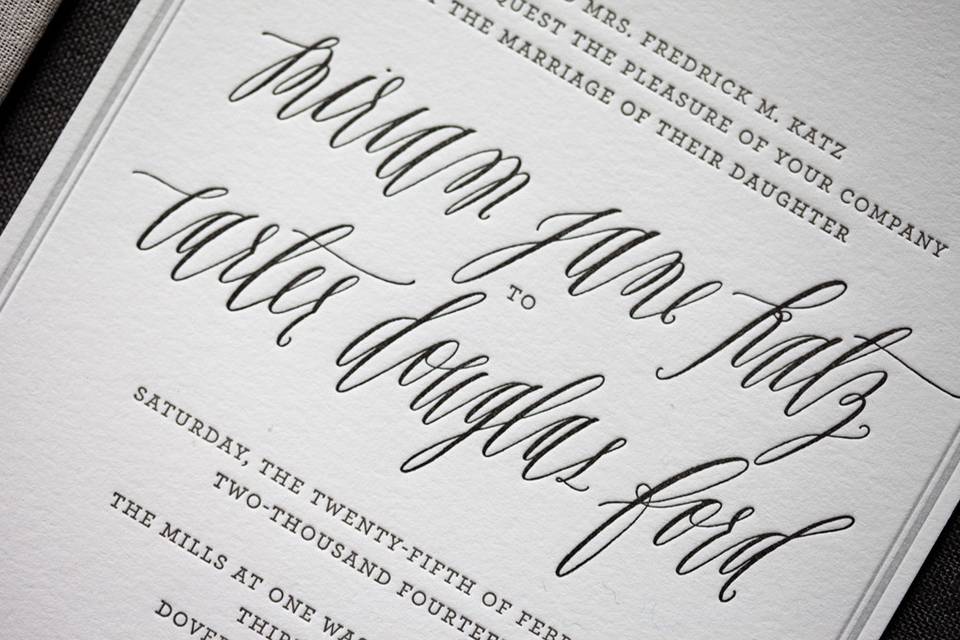 MRS. FREDRICK M. KATZ
QUEST THE PLEASURE OF YOUR COMPANY
THE MARRIAGE OF THEIR DAUGHTER
miriam jane katz
TO
carter douglas ford
SATURDAY, THE TWENTY-FIFTH OF FEB
TWO-THOUSAND FOURTEE
THE MILLS AT ONE WA
THIR
DOVE